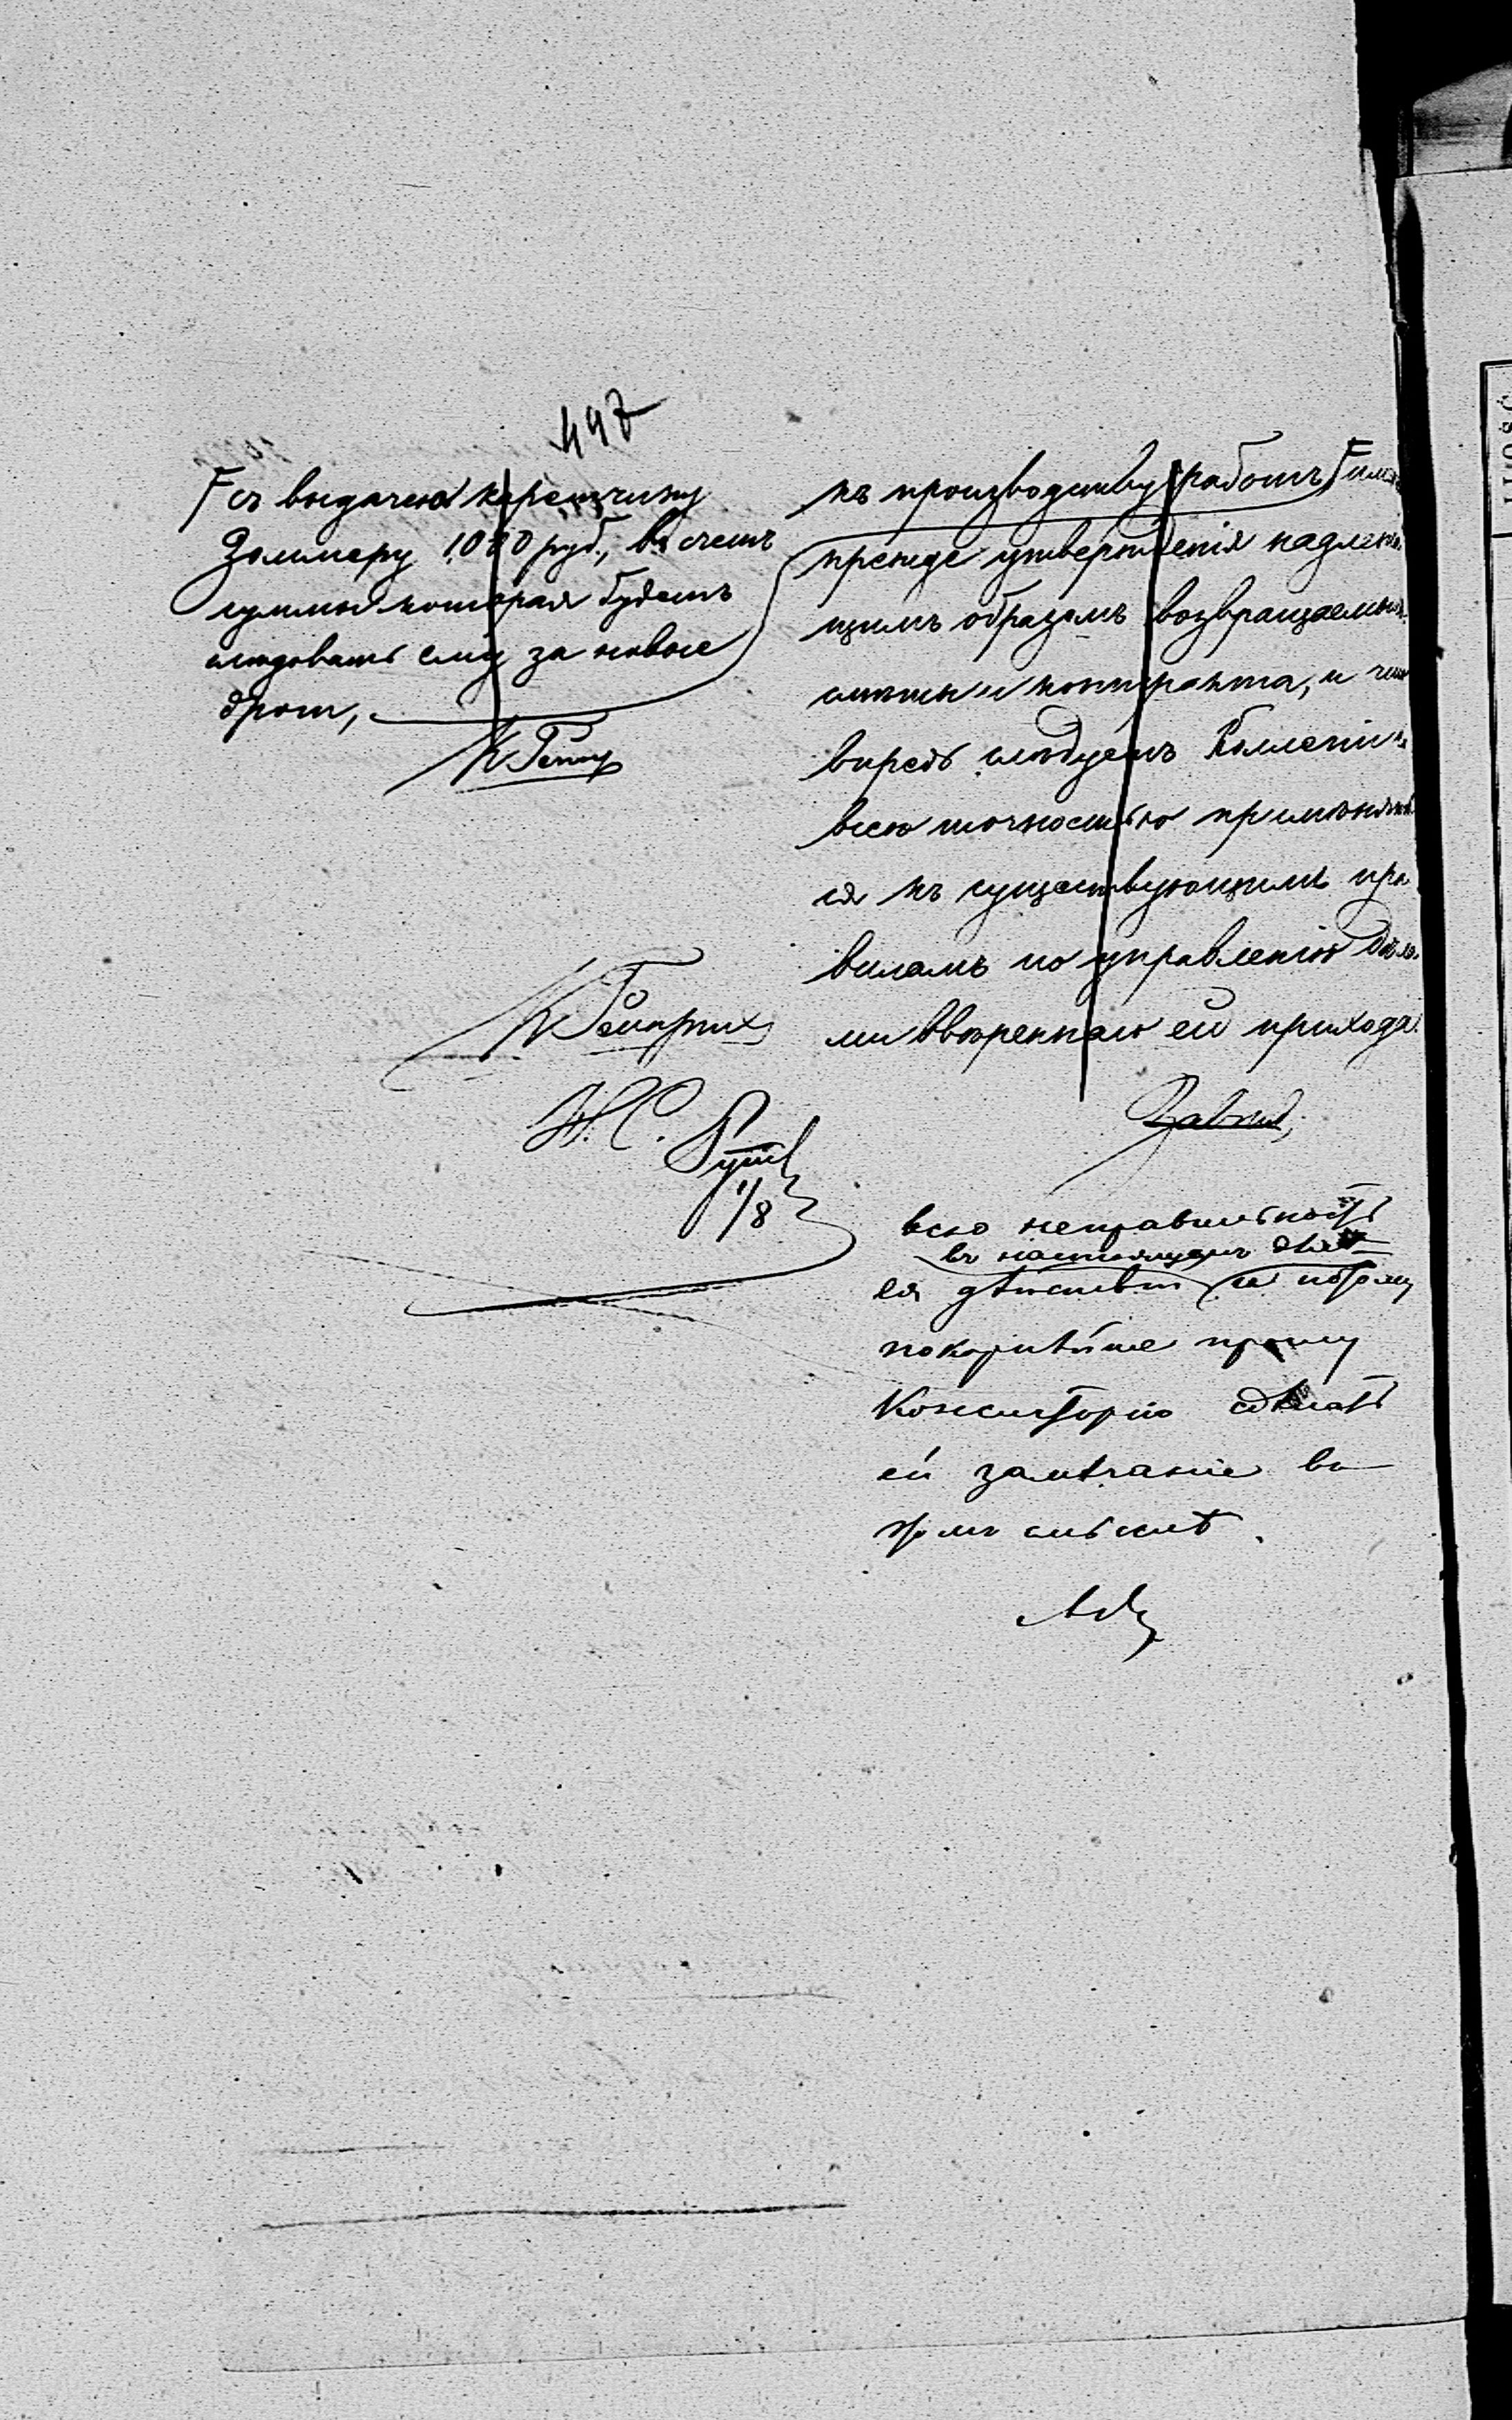 497
съ выдачею
Золмеру 1000 руб., въ счетъ
суммы которая будетъ
следовать ему за новые
дрот,
къ производству работъ
прежде утвержденія надлежа
щимъ образомъ возвращаемы
сметы и контракта, и что
впредь следуетъ Коллегіи
всею точностью применять
ся къ существующимъ пра
виламъ по управленію дела
ми ввереннаго ей прихода.
К Гемприхъ
1/8
всю неправильность
въ настоящемъ деле
ея действій и потому
покорнейше прошу
Консисторію сделать
ей замѣчаніе въ
томъ смыслѣ.